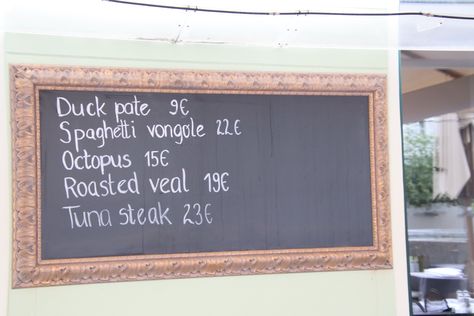 Duck pate 9€
Spaghetti vongole 22€
Octopus 15€
Roasted veal 19€
Tuna steak 23€